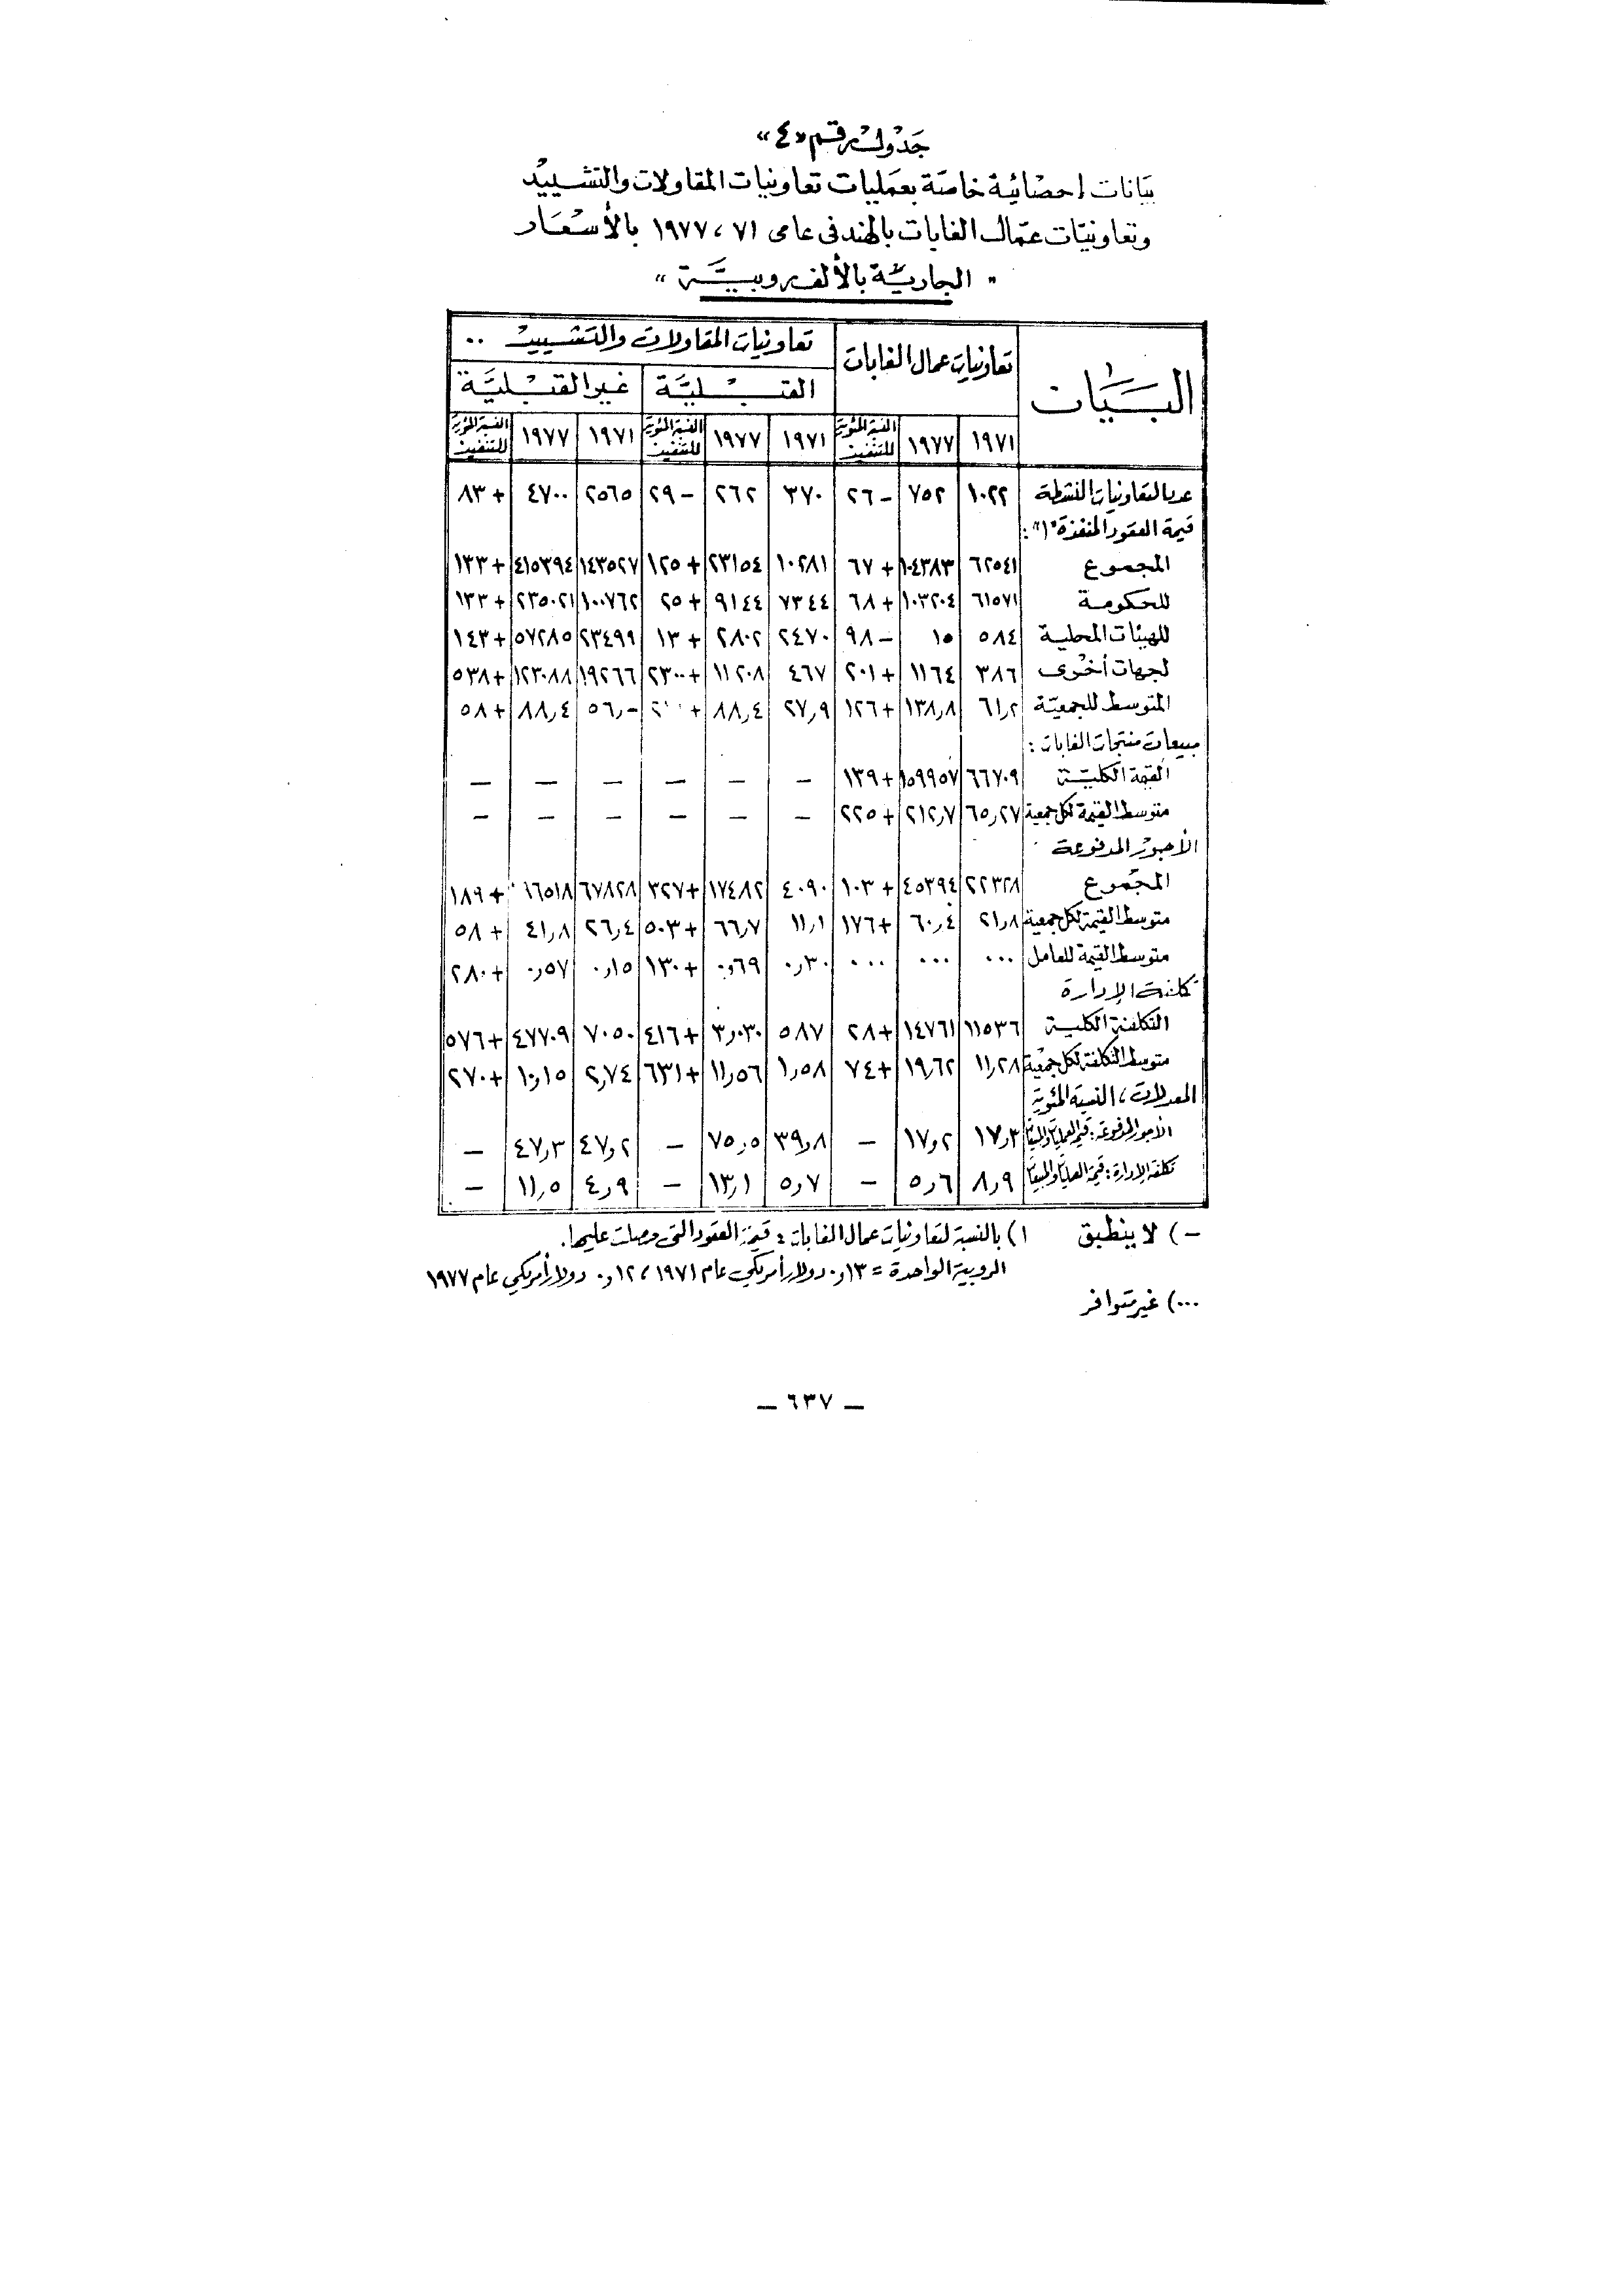 جدول رقم «٤»
بيانات إحصائية خاصة بعمليات تعاونيات المقاولات والتشييد
وتعاونيات عمال الغابات بالهند في عامى ٧١ ، ١٩٧٧ بالأسعار
" الجارية بالألف روبية "
البيان تعاونيات عمال الغابات تعاونيات المقاولات والتشييد ..
القبلية غير القبلية
١٩٧١ ١٩٧٧ النسبة المئوية للتنفيذ ١٩٧١ ١٩٧٧ النسبة المئوية للتنفيذ ١٩٧١ ١٩٧٧ النسبة المئوية للتنفيذ
عدد التعاونيات النشطة ١٠٢٢ ٧٥٢ -٢٦ ٣٧٠ ٢٦٢ -٢٩ ٢٥٦٥ ٤٧٠٠ +٨٣
قيمة العقود المنفذة "١" :
المجموع ٦٢٥٤١ ١٠٤٣٨٣ +٦٧ ١٠٢٨١ ٢٣١٥٤ +١٢٥ ١٤٣٥٢٧ ٤١٥٣٩٤ +١٣٣
للحكومة ٦١٥٧١ ١٠٣٢٠٤ +٦٨ ٧٣٤٤ ٩١٤٤ +٢٥ ١٠٠٧٦٢ ٢٣٥٠٢١ +١٣٣
للهيئات المحلية ٥٨٤ ١٥ -٩٨ ٢٤٧٠ ٢٨٠٢ +١٣ ٢٣٤٩٩ ٥٧٢٨٥ +١٤٣
لجهات أخرى ٣٨٦ ١١٦٤ +٢٠١ ٤٦٧ ١١٢٠٨ +٢٣٠٠ ١٩٢٦٦ ١٢٣٠٨٨ +٥٣٨
المتوسط للجمعية ٦١٫٢ ١٣٨٫٨ +١٢٦ ٢٧٫٩ ٨٨٫٤ + ٥٦٫- ٨٨٫٤ +٥٨
مبيعات منتجات الغابات :
القيمة الكلية ٦٦٧٠٩ ١٥٩٩٥٧ +١٣٩ — — — — — —
متوسط القيمة لكل جمعية ٦٥٫٢٧ ٢١٢٫٧ +٢٢٥ — — — — — —
الأجور المدفوعة
المجموع ٢٢٣٢٨ ٤٥٣٩٤ +١٠٣ ٤٠٩٠ ١٧٤٨٢ +٣٢٧ ٦٧٨٢٨ ١٦٥١٨ +١٨٩
متوسط القيمة لكل جمعية ٢١٫٨ ٦٠٫٤ +١٧٦ ١١٫١ ٦٦٫٧ +٥٠٣ ٢٦٫٤ ٤١٫٨ +٥٨
متوسط القيمة للعامل ٠٠٠ ٠٠٠ ٠٠٠ ٠٫٣٠ ٠٫٦٩ +١٣٠ ٠٫١٥ ٠٫٥٧ +٢٨٠
تكلفة الإدارة
التكلفة الكلية ١١٥٣٦ ١٤٧٦١ +٢٨ ٥٨٧ ٣٫٠٣٠ +٤١٦ ٧٠٥٠ ٤٧٧٠٩ +٥٧٦
متوسط التكلفة لكل جمعية ١١٫٢٨ ١٩٫٦٢ +٧٤ ١٫٥٨ ١١٫٥٦ +٦٣١ ٢٫٧٤ ١٠٫١٥ +٢٧٠
المعدلات ، النسبة المئوية
الأجور المدفوعة : قيم العمليات والمبيعات ١٧٫٣ ١٧٫٢ — ٣٩٫٨ ٧٥٫٥ — ٤٧٫٢ ٤٧٫٣ —
تكلفة الإدارة : قيمة العمليات والمبيعات ٨٫٩ ٥٫٦ — ٥٫٧ ١٣٫١ — ٤٫٩ ١١٫٥ —
-) لا ينطبق ١) بالنسبة لتعاونيات عمال الغابات : قيمة العقود التى حصلت عليها.
الروبية الواحدة = ٠٫١٣ دولار أمريكي عام ١٩٧١ ، ٠٫١٢ دولار أمريكي عام ١٩٧٧
...) غير متوافر
— ٦٣٧ —